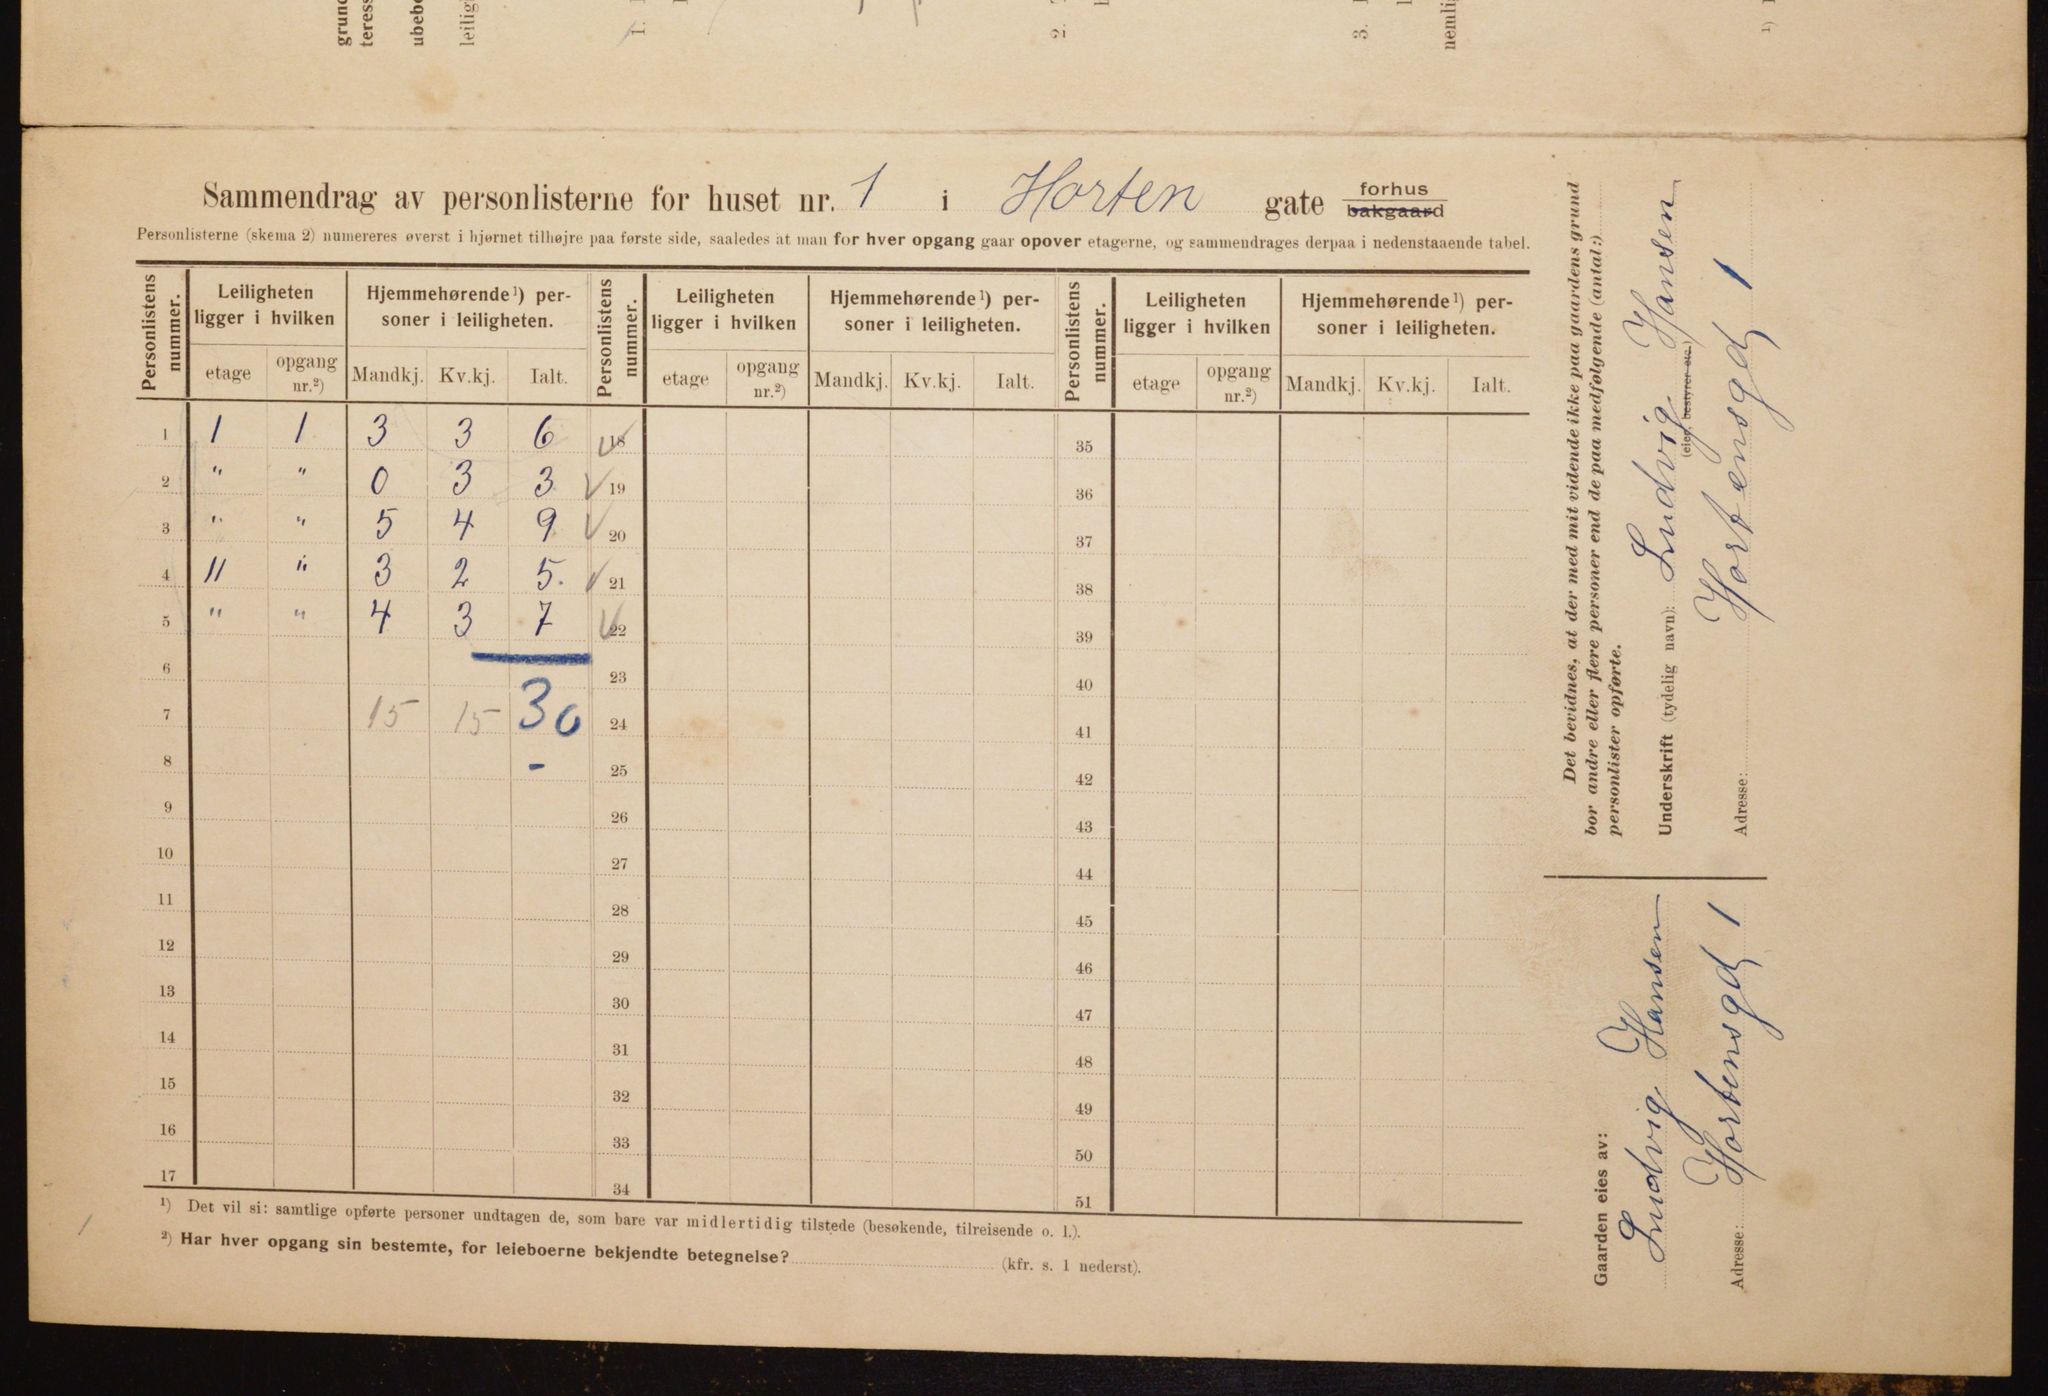 grund
teress
ubebo
leilig
1.
2.
3.
nemli
1)
Sammendrag av personlisterne for huset nr. 1 i Horten gate forhus bakgaard
Personlisterne (skema 2) numereres øverst i hjørnet tilhøjre paa første side, saaledes at man for hver opgang gaar opover etagerne, og sammendrages derpaa i nedenstaaende tabel.
Personlistens nummer. Leiligheten ligger i hvilken Hjemmehørende ¹) personer i leiligheten. Personlistens nummer. Leiligheten ligger i hvilken Hjemmehørende ¹) personer i leiligheten. Personlistens nummer. Leiligheten ligger i hvilken Hjemmehørende ¹) personer i leiligheten.
etage opgang nr.²) Mandkj. Kv.kj. Ialt. etage opgang nr.²) Mandkj. Kv.kj. Ialt. etage opgang nr.²) Mandkj. Kv.kj. Ialt.
1 1 1 3 3 6 18 35
2 " " 0 3 3 19 36
3 " " 5 4 9 20 37
4 11 " 3 2 5. 21 38
5 " " 4 3 7 22 39
6 23 40
7 15 15 30 24 41
8 - 25 42
9 26 43
10 27 44
11 28 45
12 29 46
13 30 47
14 31 48
15 32 49
16 33 50
17 34 51
¹) Det vil si: samtlige opførte personer undtagen de, som bare var midlertidig tilstede (besøkende, tilreisende o. l.).
²) Har hver opgang sin bestemte, for leieboerne bekjendte betegnelse? (kfr. s. 1 nederst).
Det bevidnes, at der med mit vidende ikke paa gaardens grund
bor andre eller flere personer end de paa medfølgende (antal:)
personlister opførte.
Underskrift (tydelig navn): Ludvig Hansen
(eier, bestyrer etc.)
Adresse: Hortensgd 1
Gaarden eies av:
Ludvig Hansen
Adresse: Hortensgd 1